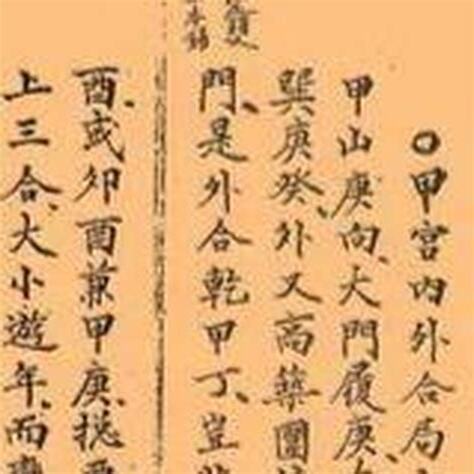 ○甲宮内外合局
甲山庚向、大門履庚、
巽庚癸、外又高築圍
門、是外合乾甲丁、豈
酉、或卯酉兼甲庚、挩
上三合、大小遊年、而